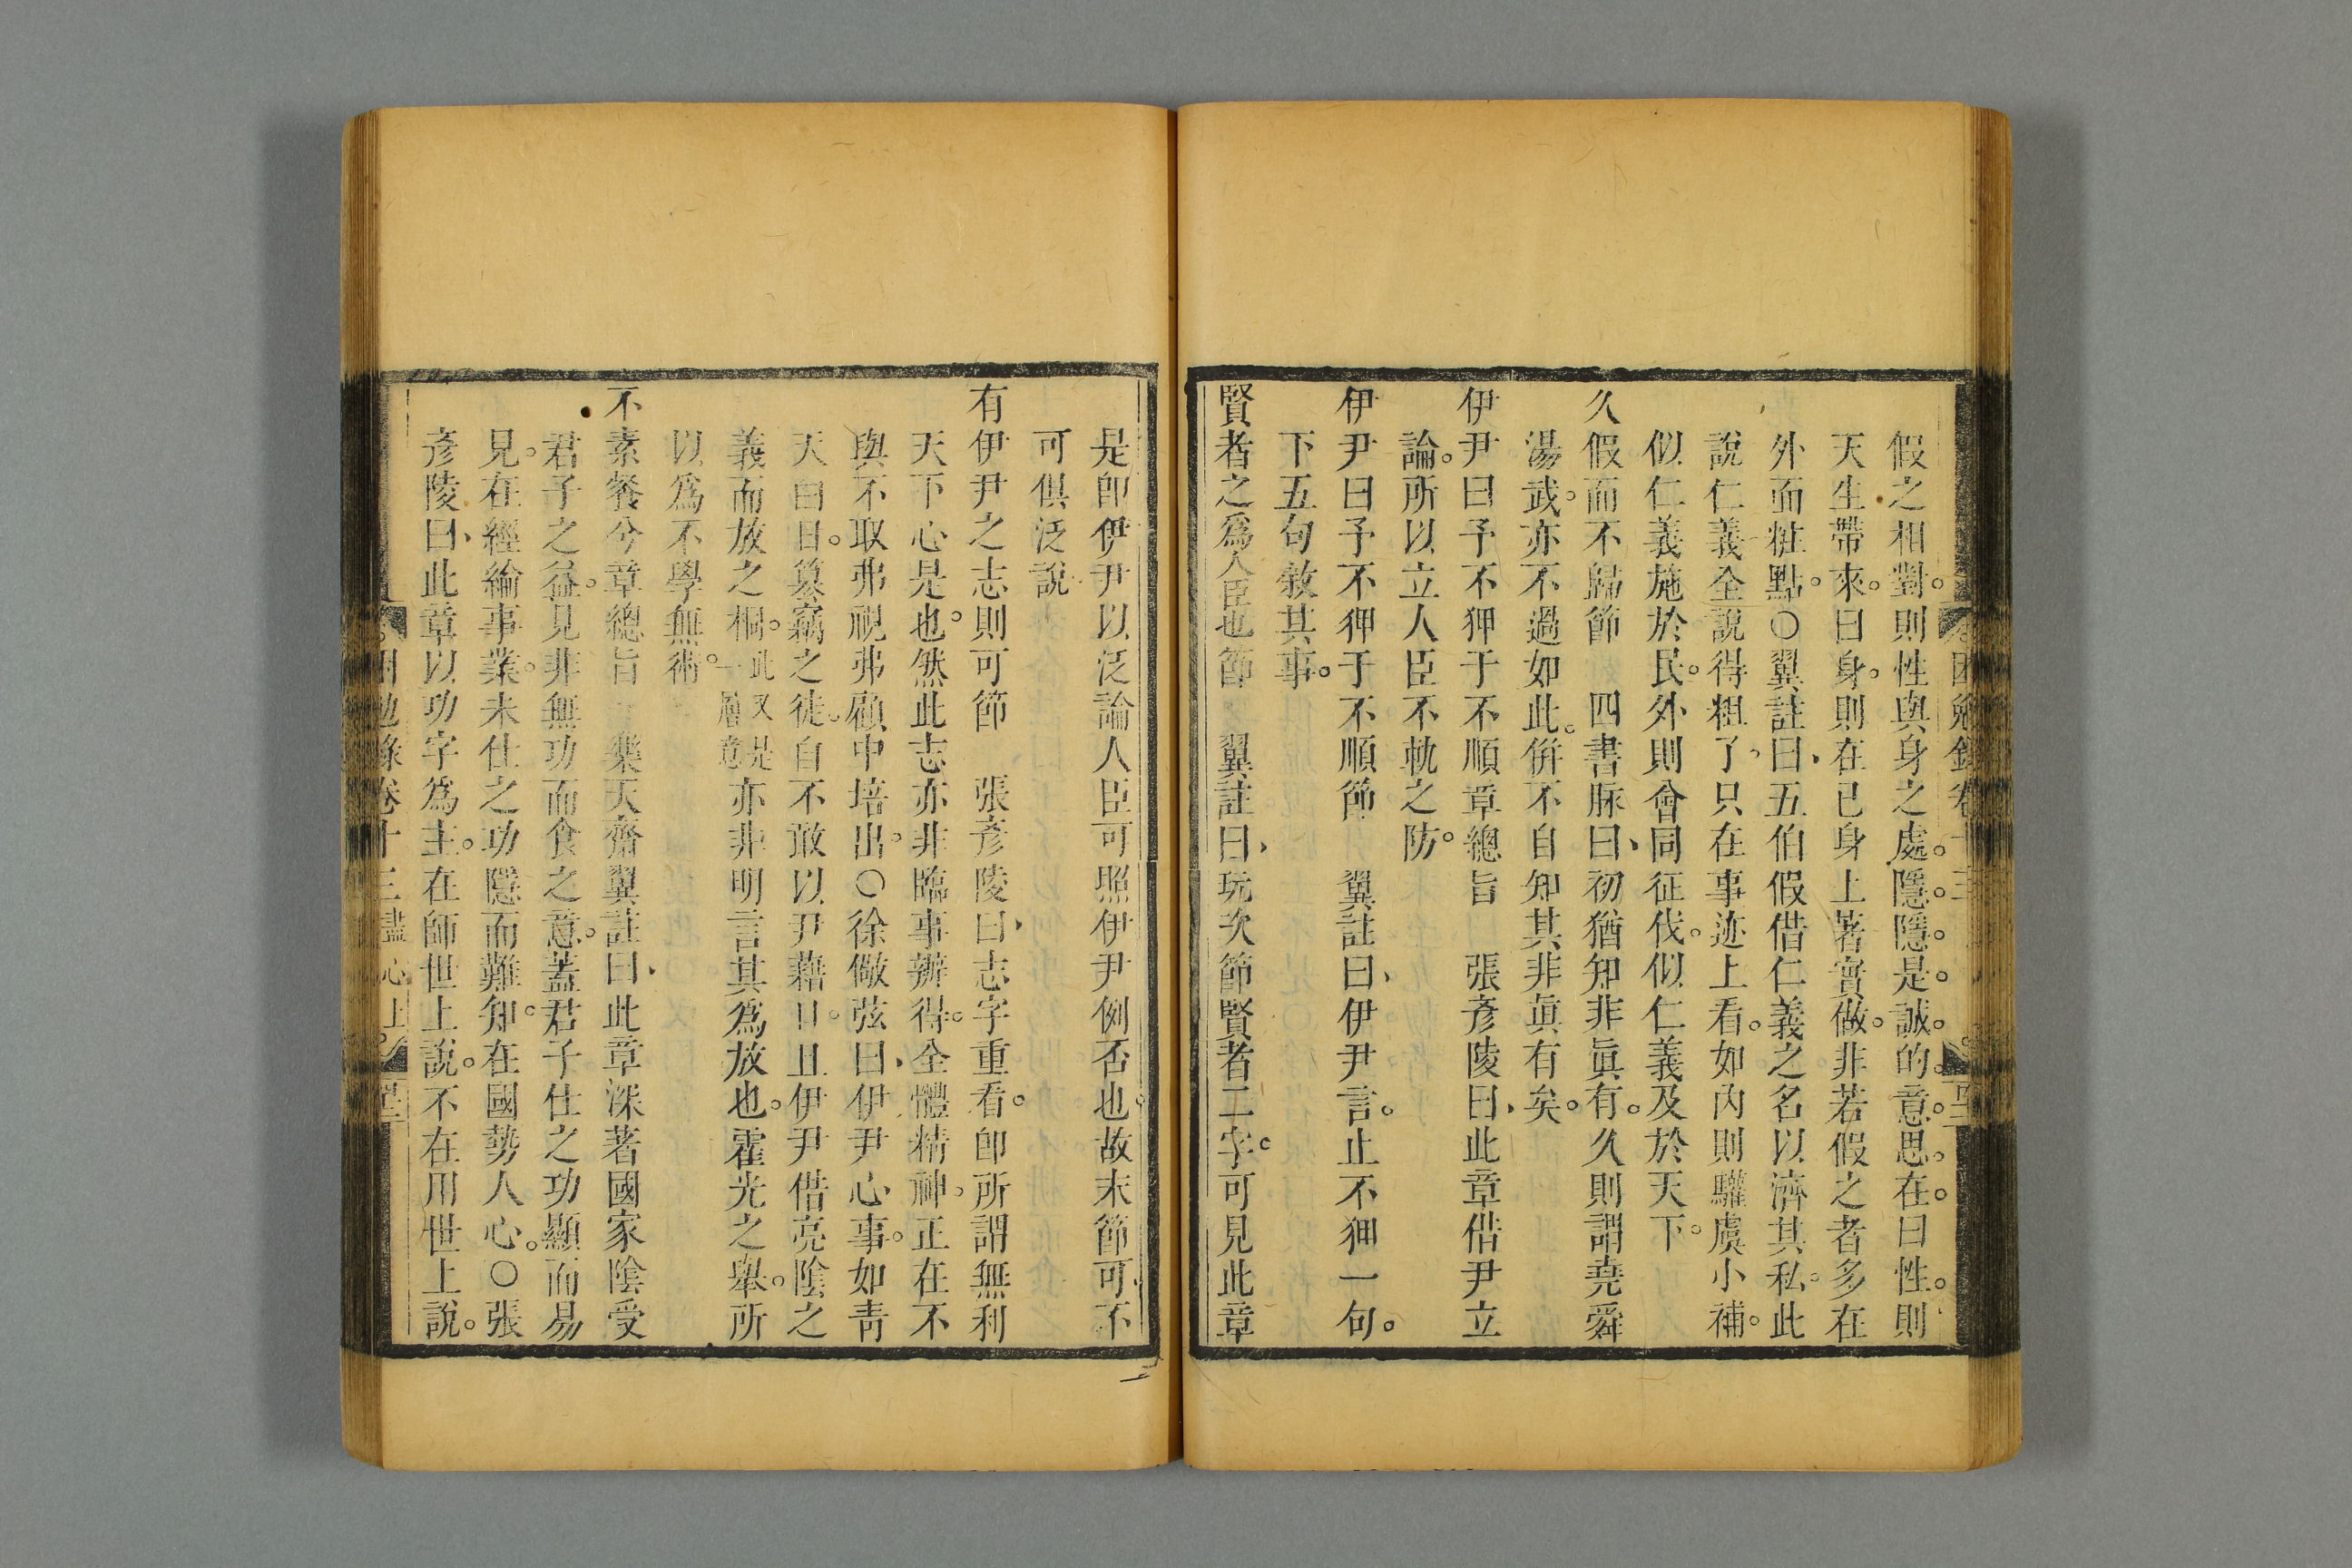 假之相對則性與身之處隱隱是誠的意思在曰性則
天生帶來曰身則在已身上著實做非若假之者多在
外而粧點○翼註曰五伯假借仁義之名以濟其私此
說仁義全說得粗了只在事迹上看如內則驩虞小補
似仁義施於民外則會同征伐似仁義及於天下
久假而不歸節　四書脉曰初猶知非眞有久則謂堯舜
湯武亦不過如此併不自知其非眞有矣
伊尹曰予不狎于不順章總旨　張彥陵曰此章借尹立
論所以立人臣不軌之防
伊尹曰予不狎于不順節　翼註曰伊尹言止不狎一句
下五句敘其事
賢者之爲人臣也節　翼註曰玩次節賢者二字可見此章
是卽伊尹以泛論人臣可照伊尹例否也故末節可不
可俱泛說
有伊尹之志則可節　張彥陵曰志字重看卽所謂無利
天下心是也然此志亦非臨事辦得全體精神正在不
與不取弗視弗顧中培出○徐儆弦曰伊尹心事如靑
天白日簒竊之徒自不敢以尹藉口且伊尹借亮陰之
義而放之桐此又是一層意亦非明言其爲放也霍光之舉所
以爲不學無術
不素餐兮章總旨　樂天齋翼註曰此章深著國家陰受
君子之益見非無功而食之意蓋君子仕之功顯而易
見在經綸事業未仕之功隱而難知在國勢人心○張
彥陵曰此章以功字爲主在師世上說不在用世上說
困勉錄卷十三盡心上